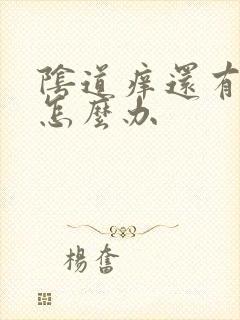 陰道痒還有
怎麼办
楊奮